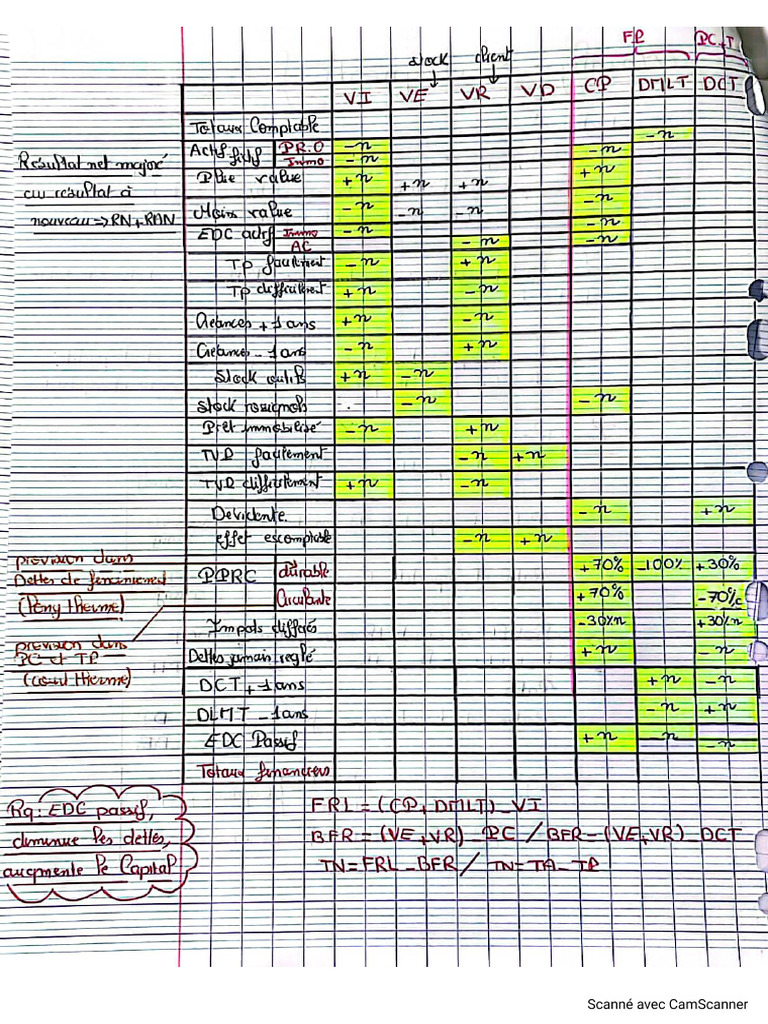 FP PC+T
stock client
VI VE VR VD CP DMLT DCT
Totaux Comptable
-n
Actif fictif PR.O -n -n
Immo -n
Plue value +n +n +n +n
Moins value -n -n -n -n
EDC actif Immo -n -n
AC -n -n
TP facilement -n +n
TP difficilement +n -n
Créances + 1 ans +n -n
Créances - 1 ans -n +n
Stock outils +n -n
Stock rossignols . -n -n
Prêt immobilisé -n +n
TVP facilement -n +n
TVP difficilement +n -n
Devidente. -n +n
effet escomptable -n +n
PPRC durable +70% -100% +30%
Circulante +70% -70%
Impots différés -30%n +30%n
Dettes jamais reglé +n -n
DCT + 1 ans +n -n
DLMT - 1 ans -n +n
EDC Passif +n -n -n
Totaux financiers
Résultat net majoré
au résultat à
nouveau => RN + RAN
provision dans
Dettes de financement
(long therme)
provision dans
PC et TP
(court therme)
Rq: EDC passif,
diminue les dettes,
augmente le Capital
FRL = (CP + DMLT) - VI
BFR = (VE + VR) - PC / BFR - (VE + VR) - DCT
TN = FRL - BFR / TN = TA - TP
Scanné avec CamScanner